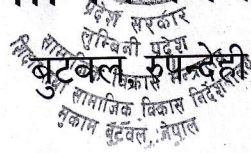 प्रदेश सरकार
लुम्बिनी प्रदेश
सामाजिक विकास
बुटवल रुपन्देही
सामाजिक विकास निर्देश
मुकाम बुटवल, नेपाल